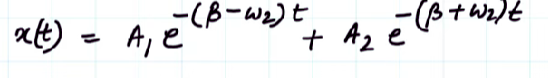 x(t) = A₁ e^{-(β-ω₂)t} + A₂ e^{-(β+ω₂)t}